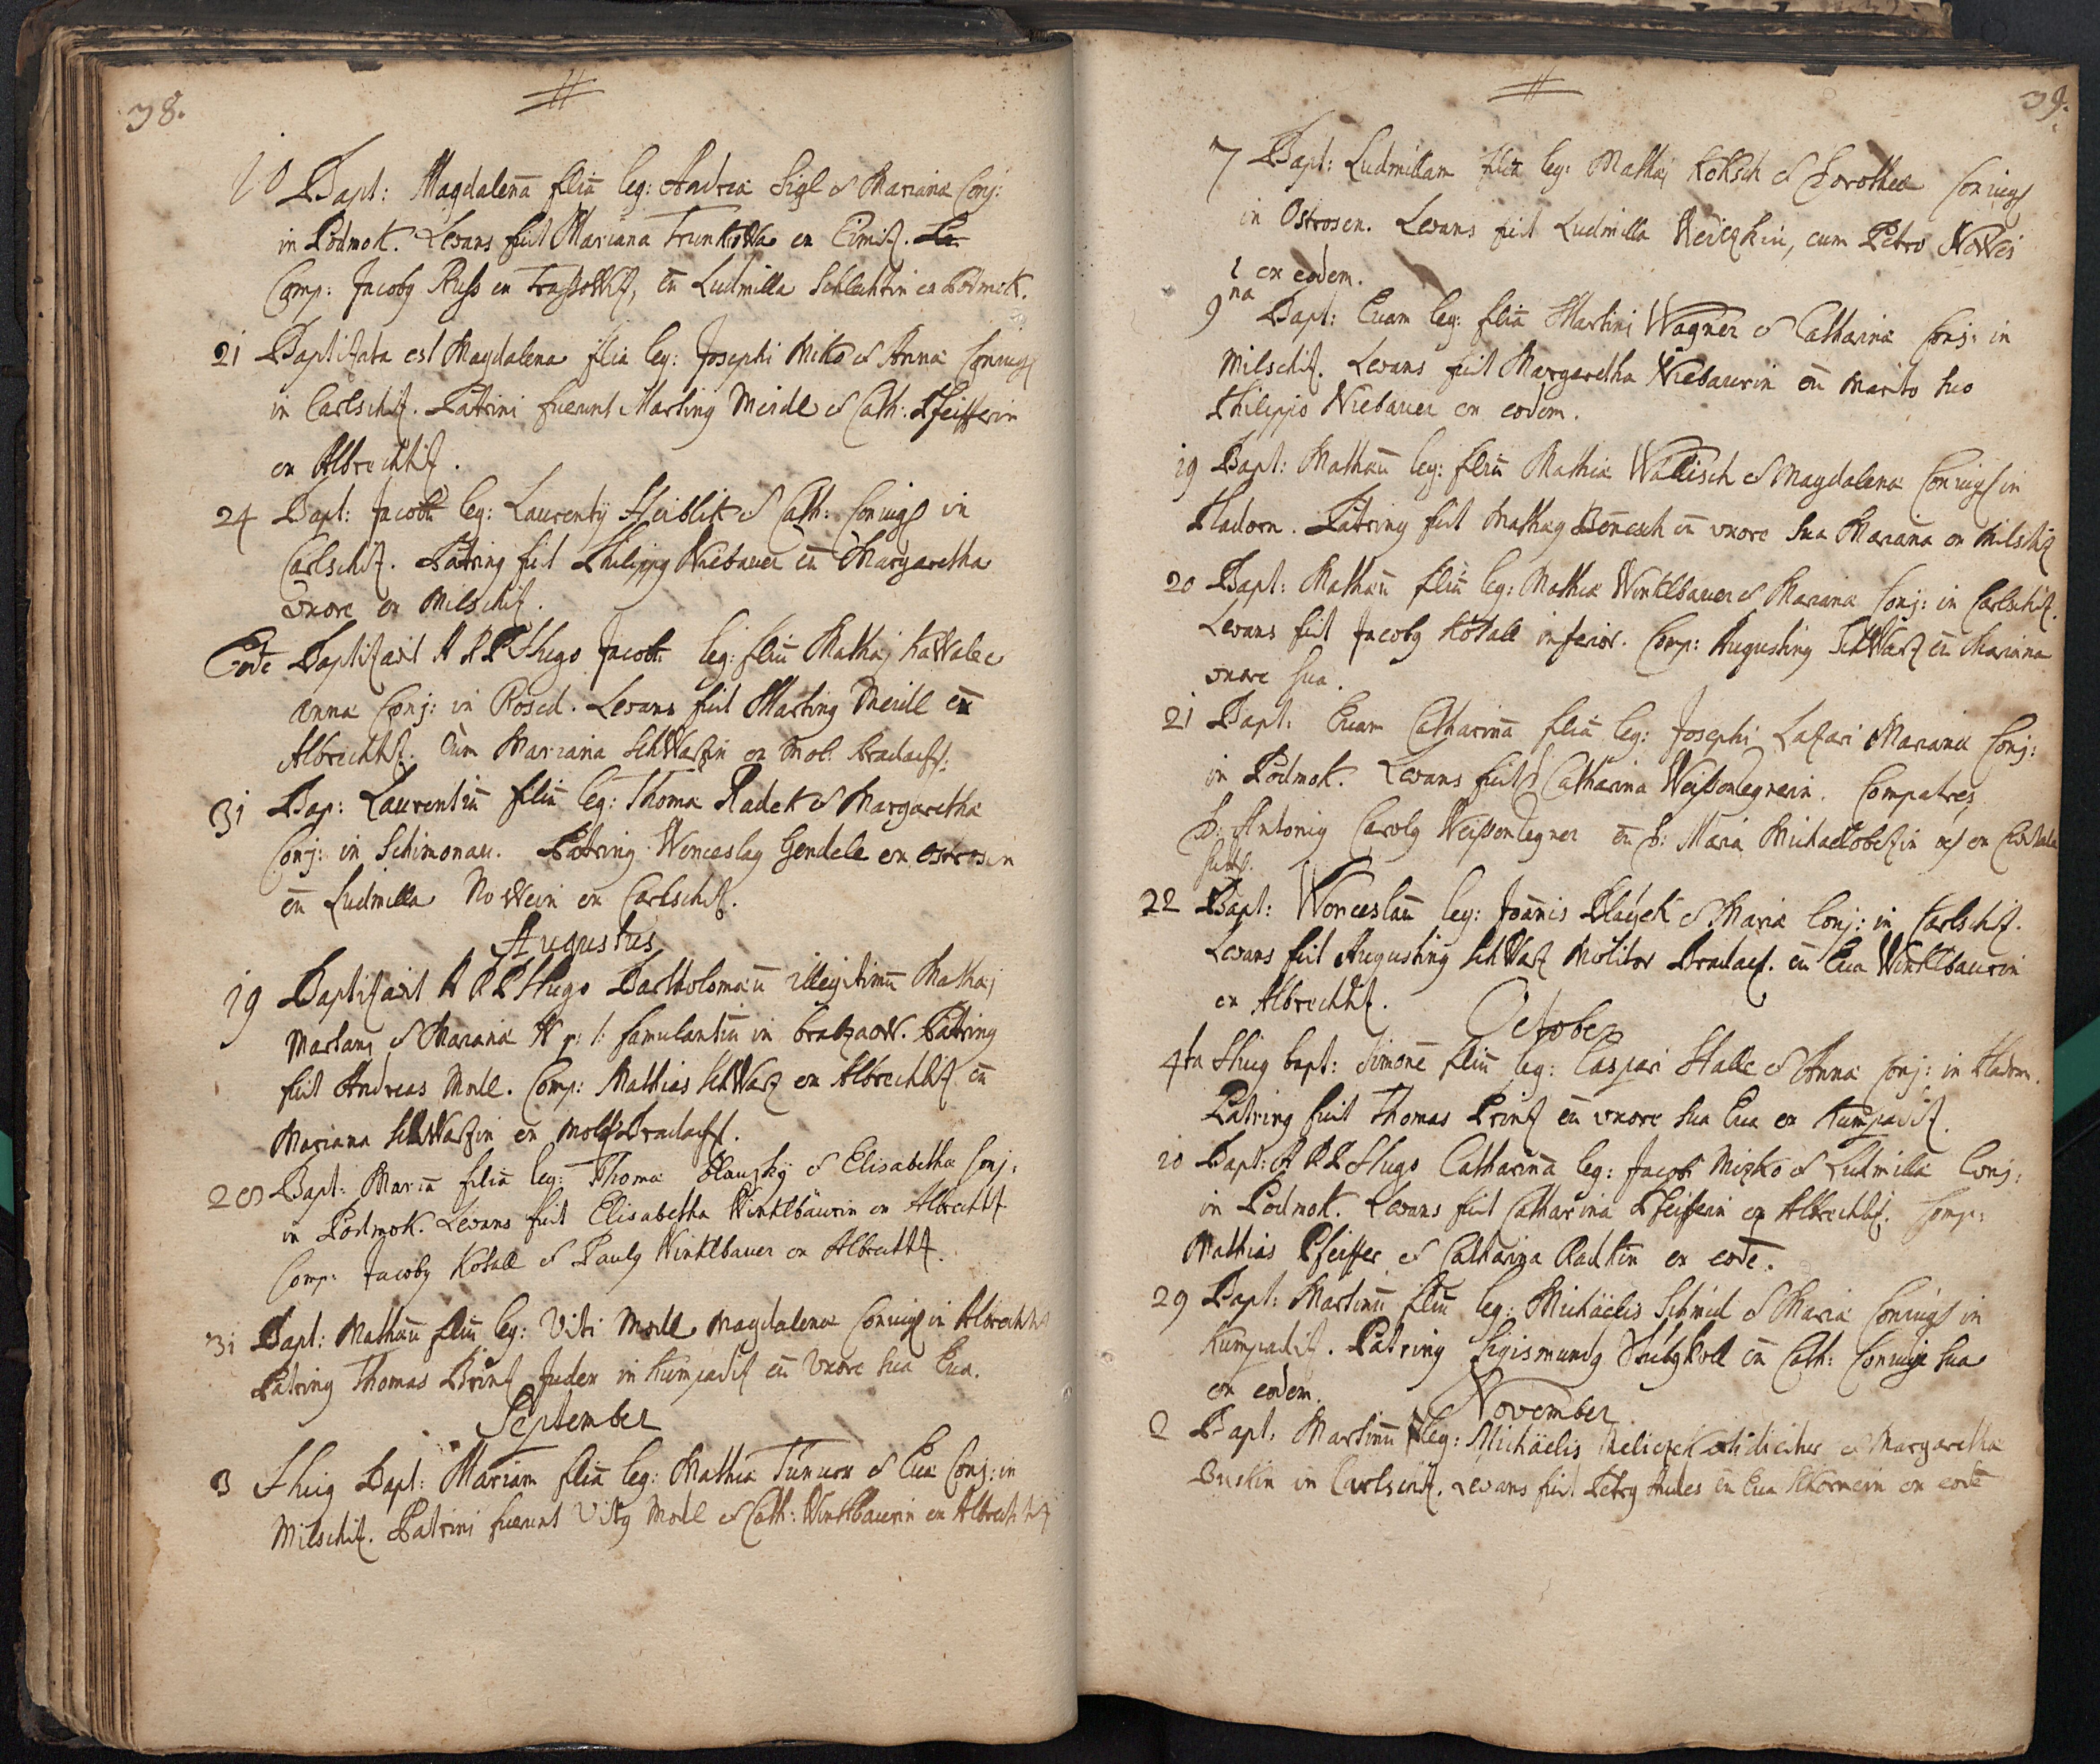 38.
10 Bapt: Magdalenā filiā leg: Andreæ Sigl & Marianæ Conj:
in Podmok. Levans fuit Mariana Trunkowa ex Cimitz.
Comp: Jacobg Russ ex, cū Ludmilla Schlechtin ex Podmok.
21 Baptizata est Magdalena filia leg: Josephi Miko & Annæ Coniug
in Carlschitz. Patrini fuerunt Marting Meidl & Cath: Pfeifferin
ex Albrechtitz.
24 Bapt: Jacobū leg: Laurentij Heiblik & Cath: Coniug in
Carlschitz. Patring fuit Philippg Niebauer cū Margaretha
uxore ex Milschitz.
Eodē Baptizavit A R P Hugo Jacobū leg: filiū Mathæj Kawale &
Anna Conj: in Rosed. Levans fuit Marting Meidl ex
Albrechtitz. Cum Mariana Schwarzin ex Mol: Bradacs:
31 Bap: Laurentiū filiū leg: Thomæ Radek & Margaretha
Conj: in Schimonau. Patring Wenceslag Gendele ex Ostrosen
cū Ludmilla Nowein ex Carlschitz.
Augustus
19 Baptizavit A R P Hugo Bartholomæū illegitimū Mathæj
Martani & Marianæ N p: l: famulantiū in. Patring
fuit Andreas Modl. Comp: Mathias Schwarz ex Albrechtitz cū
Mariana Schwarzin ex Mol: Bradacs.
28 Bapt: Mariā filiā leg: Thomæ & Elisabetha Conj:
in Podmok. Levans fuit Elisabetha Winklbaurin ex Albrechtitz
Comp: Jacobg Kotall & Paulg Winklbauer ex Albrechtitz.
31 Bapt: Mathæū filiū leg: Viti Modl Magdalenæ Coniug in Albrechtitz
Patring Thomas Printz Judex in Kumpaditz cū Uxore sua Eua.
September
3 Hug Bapt: Mariam filiā leg: Mathiæ & Euæ Conj: in
Milschitz. Patrini fuerunt Vitg Modl & Cath: Winklbaurin ex Albrechtitz
39.
7 Bapt: Ludmillam filiā leg: Mathæj Koksch & Dorotheæ Coniug
in Ostrosen. Levans fuit Ludmilla, cum Petro Nowei
ex eodem.
9na Bapt: Euam leg: filiā Martini Wagner & Catharinæ Conj: in
Milschitz. Levans fuit Margaretha Niebaurin cū marito suo
Philippo Niebauer ex eodem.
19 Bapt: Mathæū leg: filiū Mathiæ Wallisch & Magdalenæ Coniug in
Hadorn. Patring fuit Mathæg Benesch cū uxore sua Mariana ex Milschitz
20 Bapt: Mathæū filiū leg: Mathiæ Winklbauer & Marianæ Conj: in Carlschitz.
Levans fuit Jacobg Kotall inferior. Comp: Augusting Schwarz cū Mariana
uxore sua.
21 Bapt: Euam Catharinā filiā leg: Josephi Lazari Marianæ Conj:
in Podmok. Levans fuit D: Catharina Weissenlegnerin. Compatres
D: Antonig Carolg Weissenlegner cū D: Maria
22 Bapt: Wenceslaū leg: Joānis & Mariæ Conj: in Carlschitz.
Levans fuit Augusting Schwarz Molitor Bradacs. cū Eua Winklbaurin
ex Albrechtitz.
October
4ta Hug bapt: Simonē filiū leg: Caspari Halle & Annæ Conj: in Hadorn.
Patring fuit Thomas Printz cū uxore sua Eua ex Kumpaditz.
10 Bapt: A R P Hugo Catharinā leg: Jacobi Mizko & Ludmilla Conj:
in Podmok. Levans fuit Catharina Pfeifferin ex Albrechtitz. Comp:
Mathias Pfeiffer & Catharina Radkin ex eodē.
29 Bapt: Martinū filiū leg: Michäelis Schmid & Mariæ Coniug in
Kumpaditz. Patring Sigismundg cū Cath: Coniuge sua
ex eodem.
November
2 Bapt: Martinū leg: Michäelis & Margaretha
in Carlschitz. Levans fuit Petrg cū Eua ex eodē